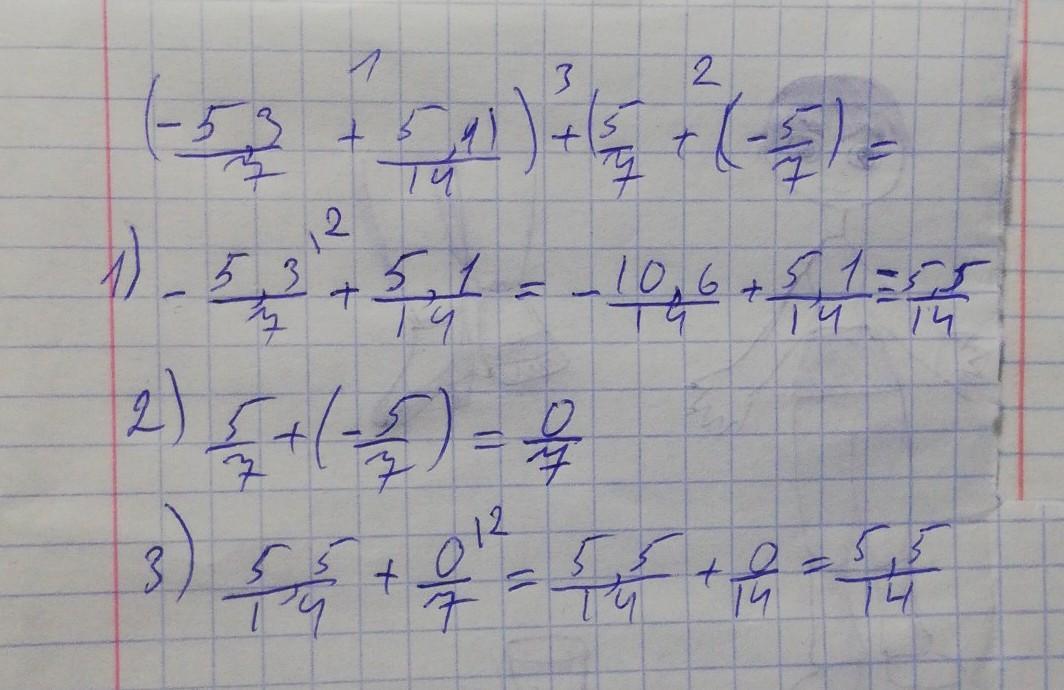 1 3 2
(- 5,3/7 + 5,1/14) + (5/7 + (- 5/7) =
1) - 5,3/7 \2 + 5,1/14 = - 10,6/14 + 5,1/14 = 5,5/14
2) 5/7 + (- 5/7) = 0/7
3) 5,5/14 + 0/7 \2 = 5,5/14 + 0/14 = 5,5/14